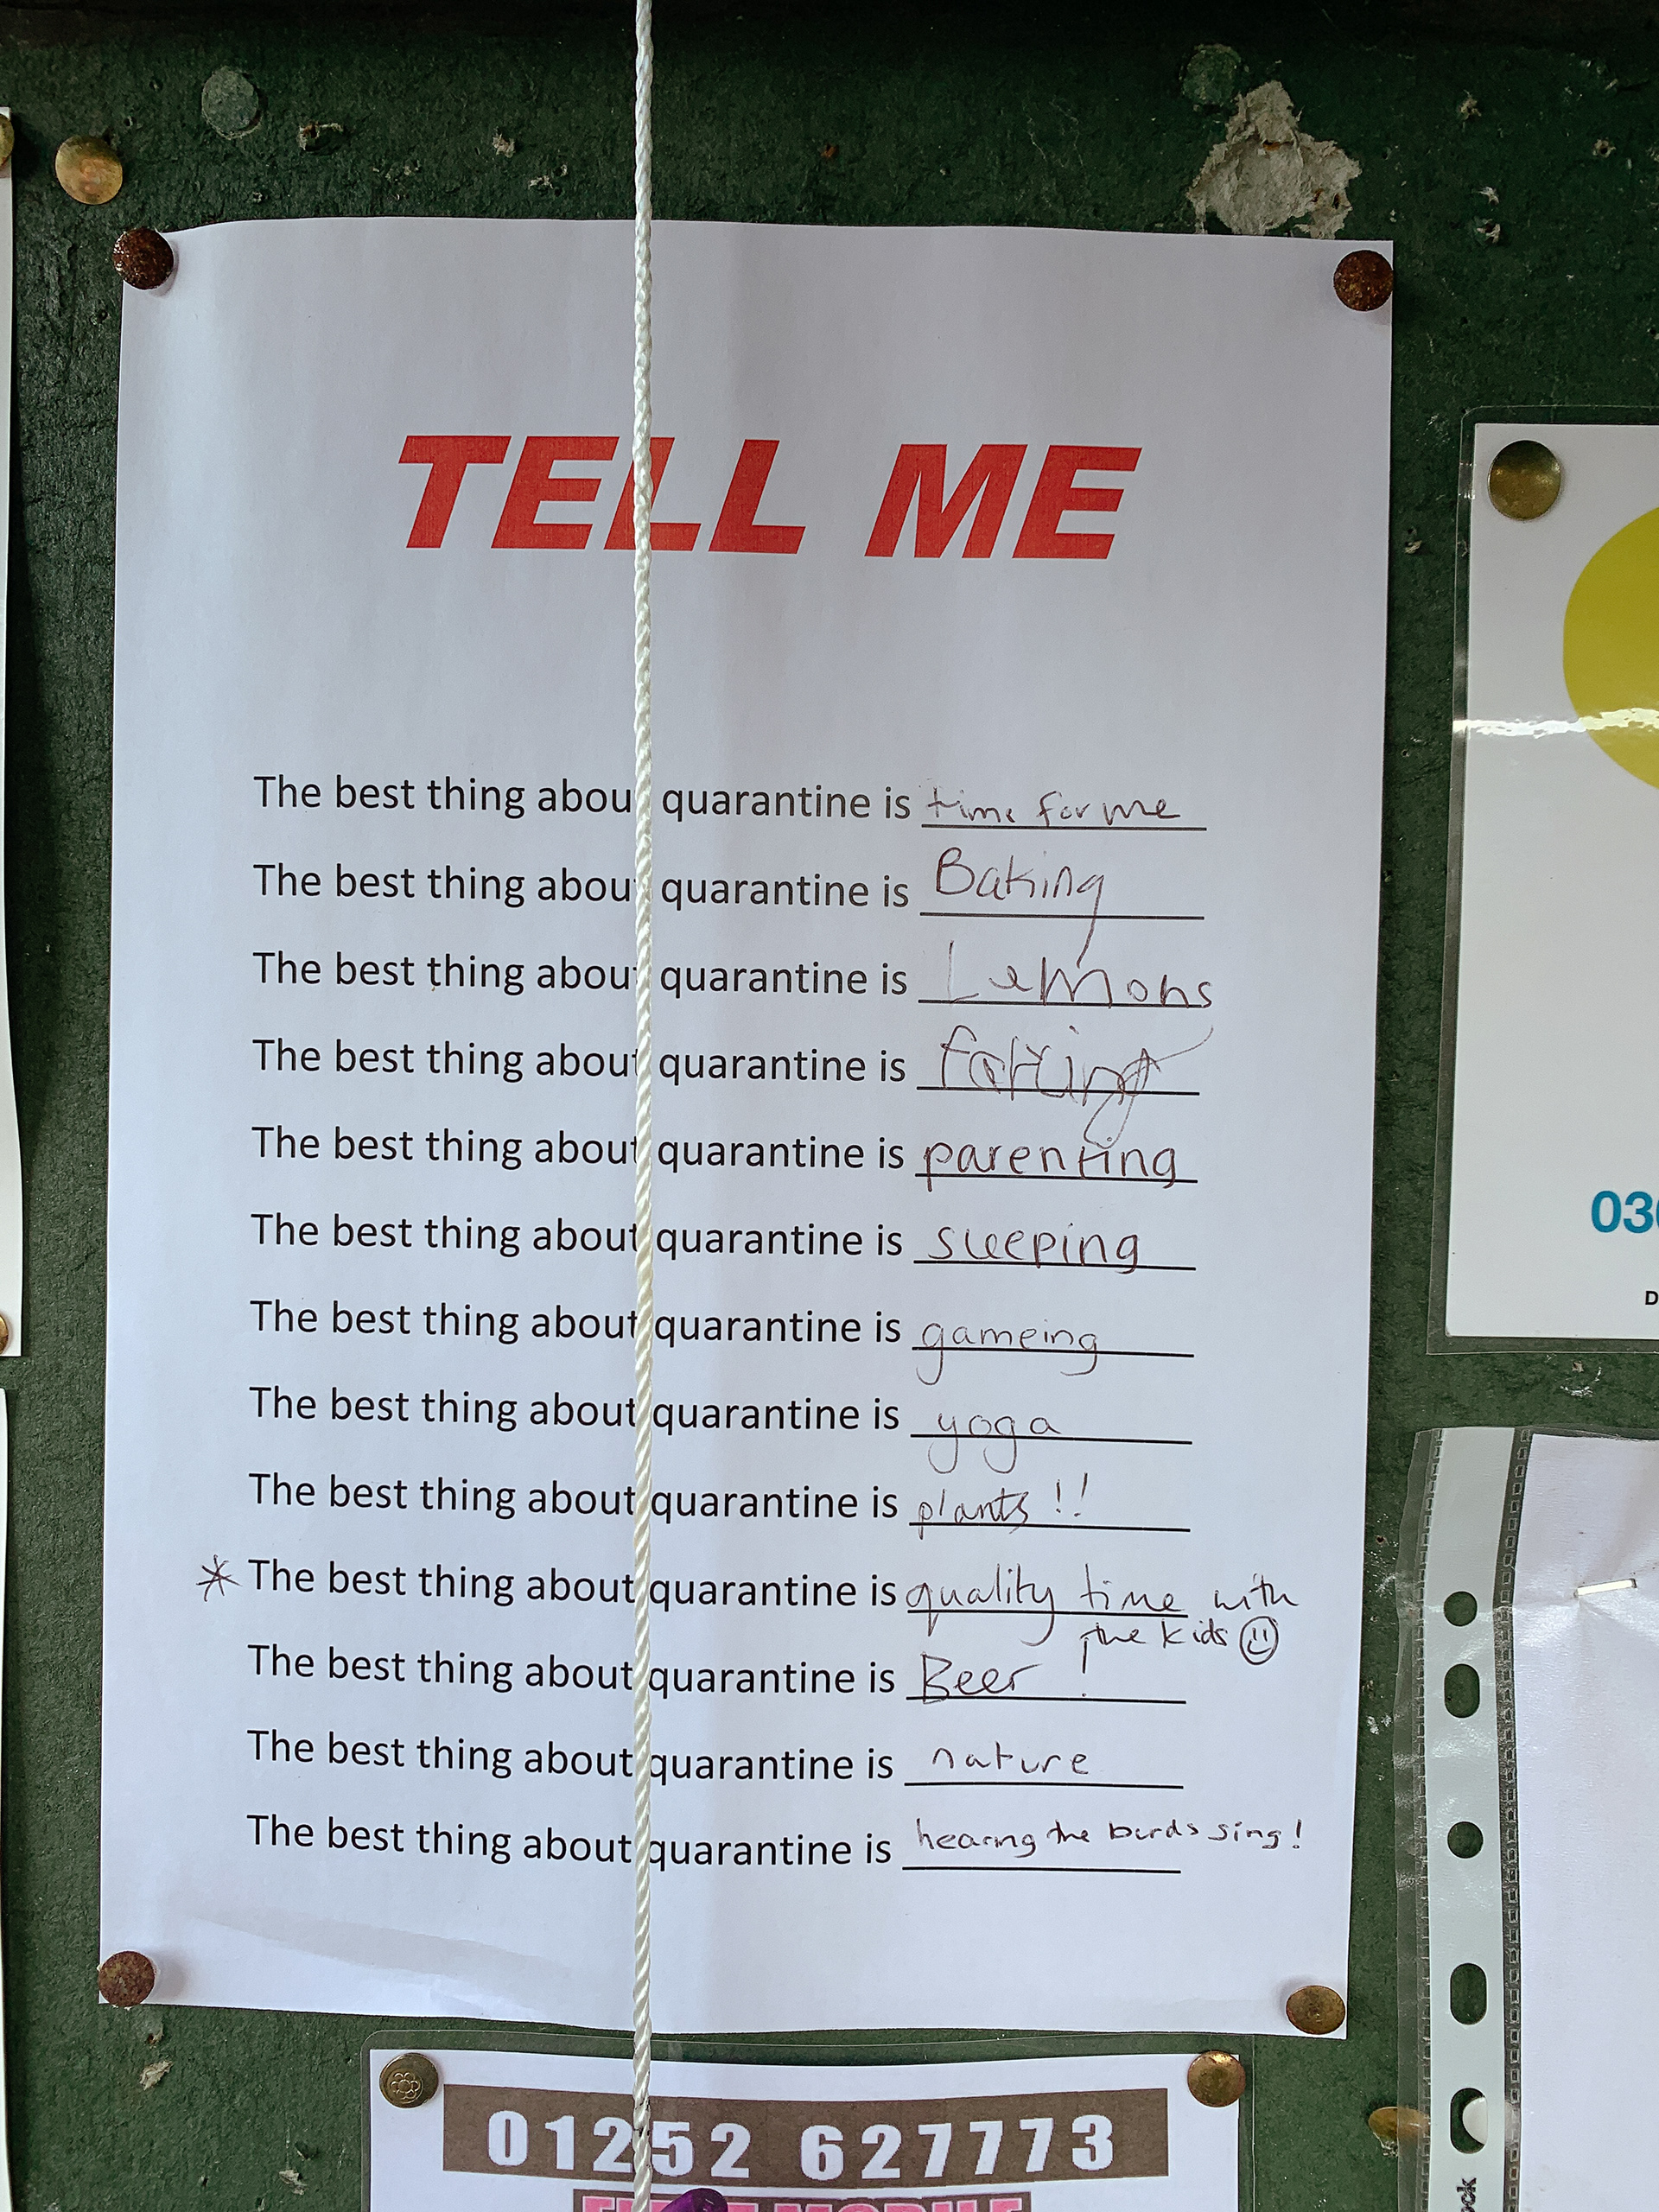 TELL ME
The best thing about quarantine is time for me
The best thing about quarantine is Baking
The best thing about quarantine is Lemons
The best thing about quarantine is farting
The best thing about quarantine is parenting
The best thing about quarantine is sleeping
The best thing about quarantine is gameing
The best thing about quarantine is yoga
The best thing about quarantine is plants!!
* The best thing about quarantine is quality time with
the kids
The best thing about quarantine is Beer!
The best thing about quarantine is nature
The best thing about quarantine is hearing the birds sing!
030
D
ock
01252 627773